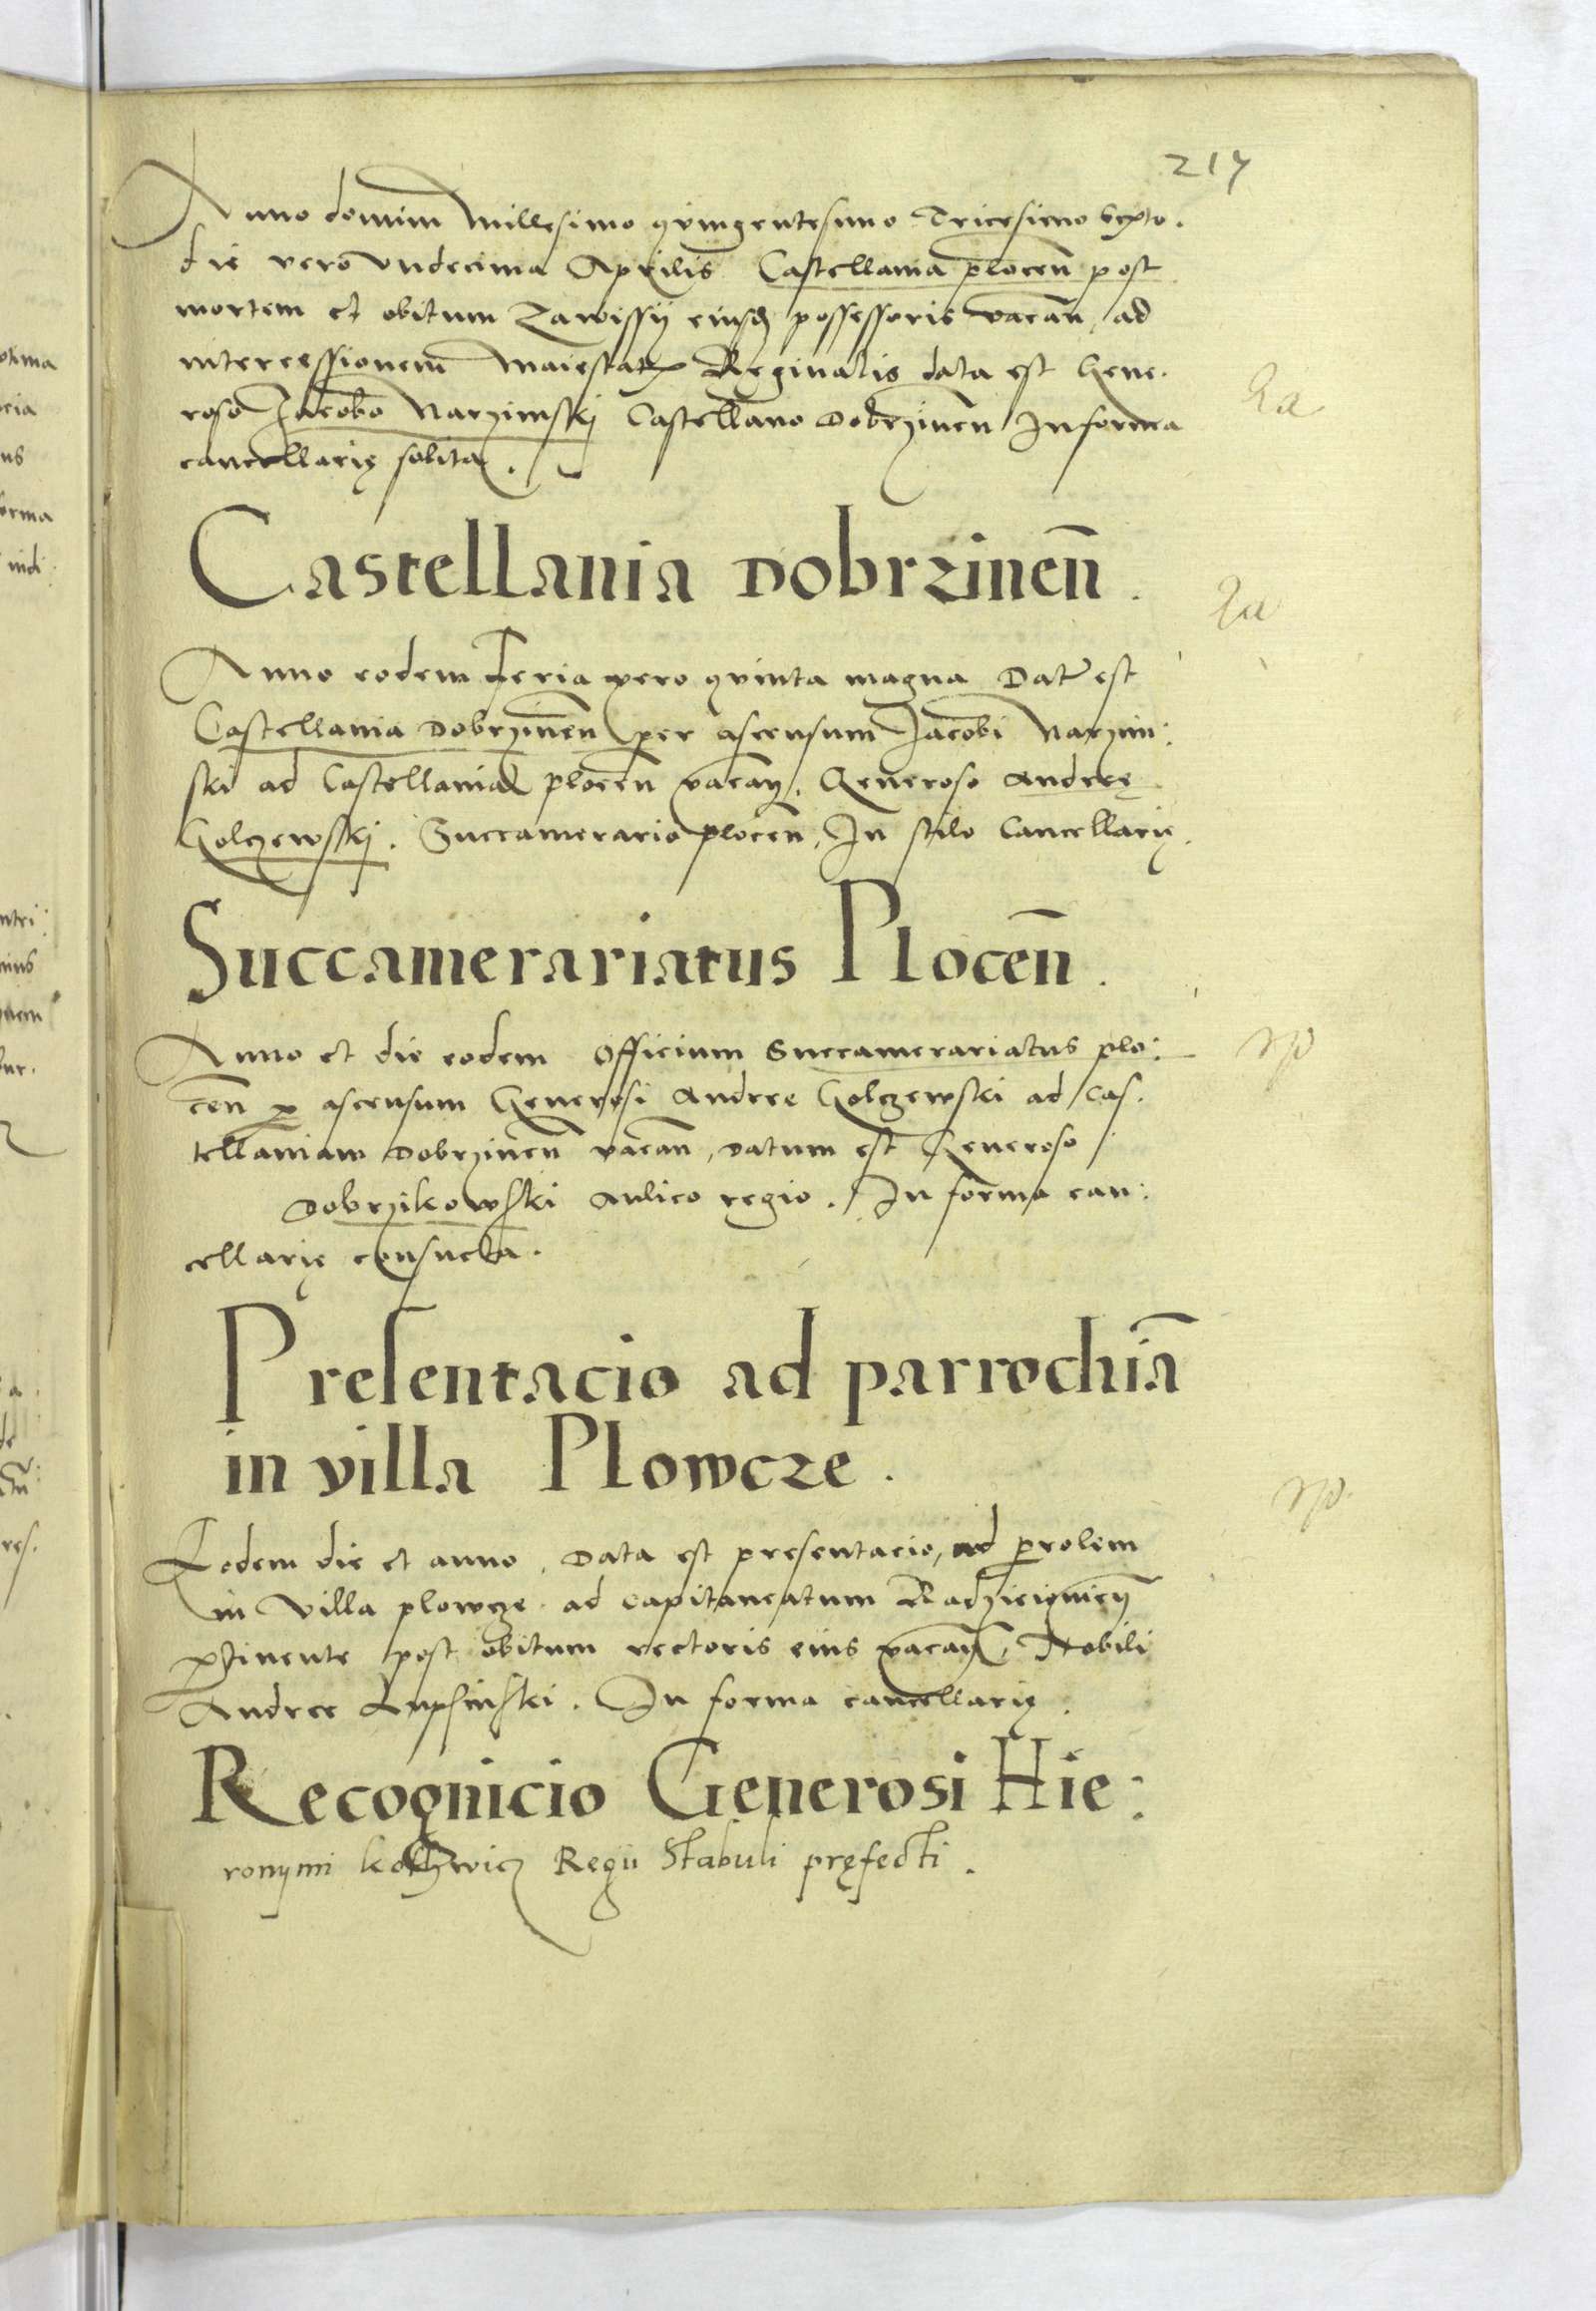 217
Anno domini Millesimo quingentesimo Tricesimo Sexto.
die vero Undecima Aprilis Castellania plocen̄ post
mortem et obitum Zawissij eiusꝫ possessoris vacan̄ ad
intercessionem Maiestatꝭ Reginalis data est Gene.
roso Jacobo Narzimskj Castellano Dobrzinen̄ In forma
cancellarię solita.
Castellania Dobrzinen̄.
Anno eodem Feria vero quinta magna Data est
Castellania Dobrzinen̄ per ascensum Jacobi Narzim:
ski ad Castellaniā plocen̄ vacan̄. Generoso Andreę
Golczewskj. Succamerario plocen̄, In stilo Cancellarię.
Succamerariatus Plocen̄.
Anno et die eodem Officium Succamerariatus plo:
cen̄ ꝑ ascensum Generosi Andree Golczewski ad Cas.
tellaniam Dobrzinen̄ vacan̄, datum est Generoso
Dobrzikowski Aulico regio. In forma can:
cellarię consueta.
Presentacio ad parrochiā
in villa Plowcze.
Eodem die et anno, Data est presentacio, ad
in villa plowcze ad capitaneatum
ꝑtinente post obitum rectoris eius vacan̄, Nobili
Andree Lupsinski. In forma cancellarię.
Recognicio Generosi Hie:
ronymi Kothwicz Regii Stabuli pręfecti.